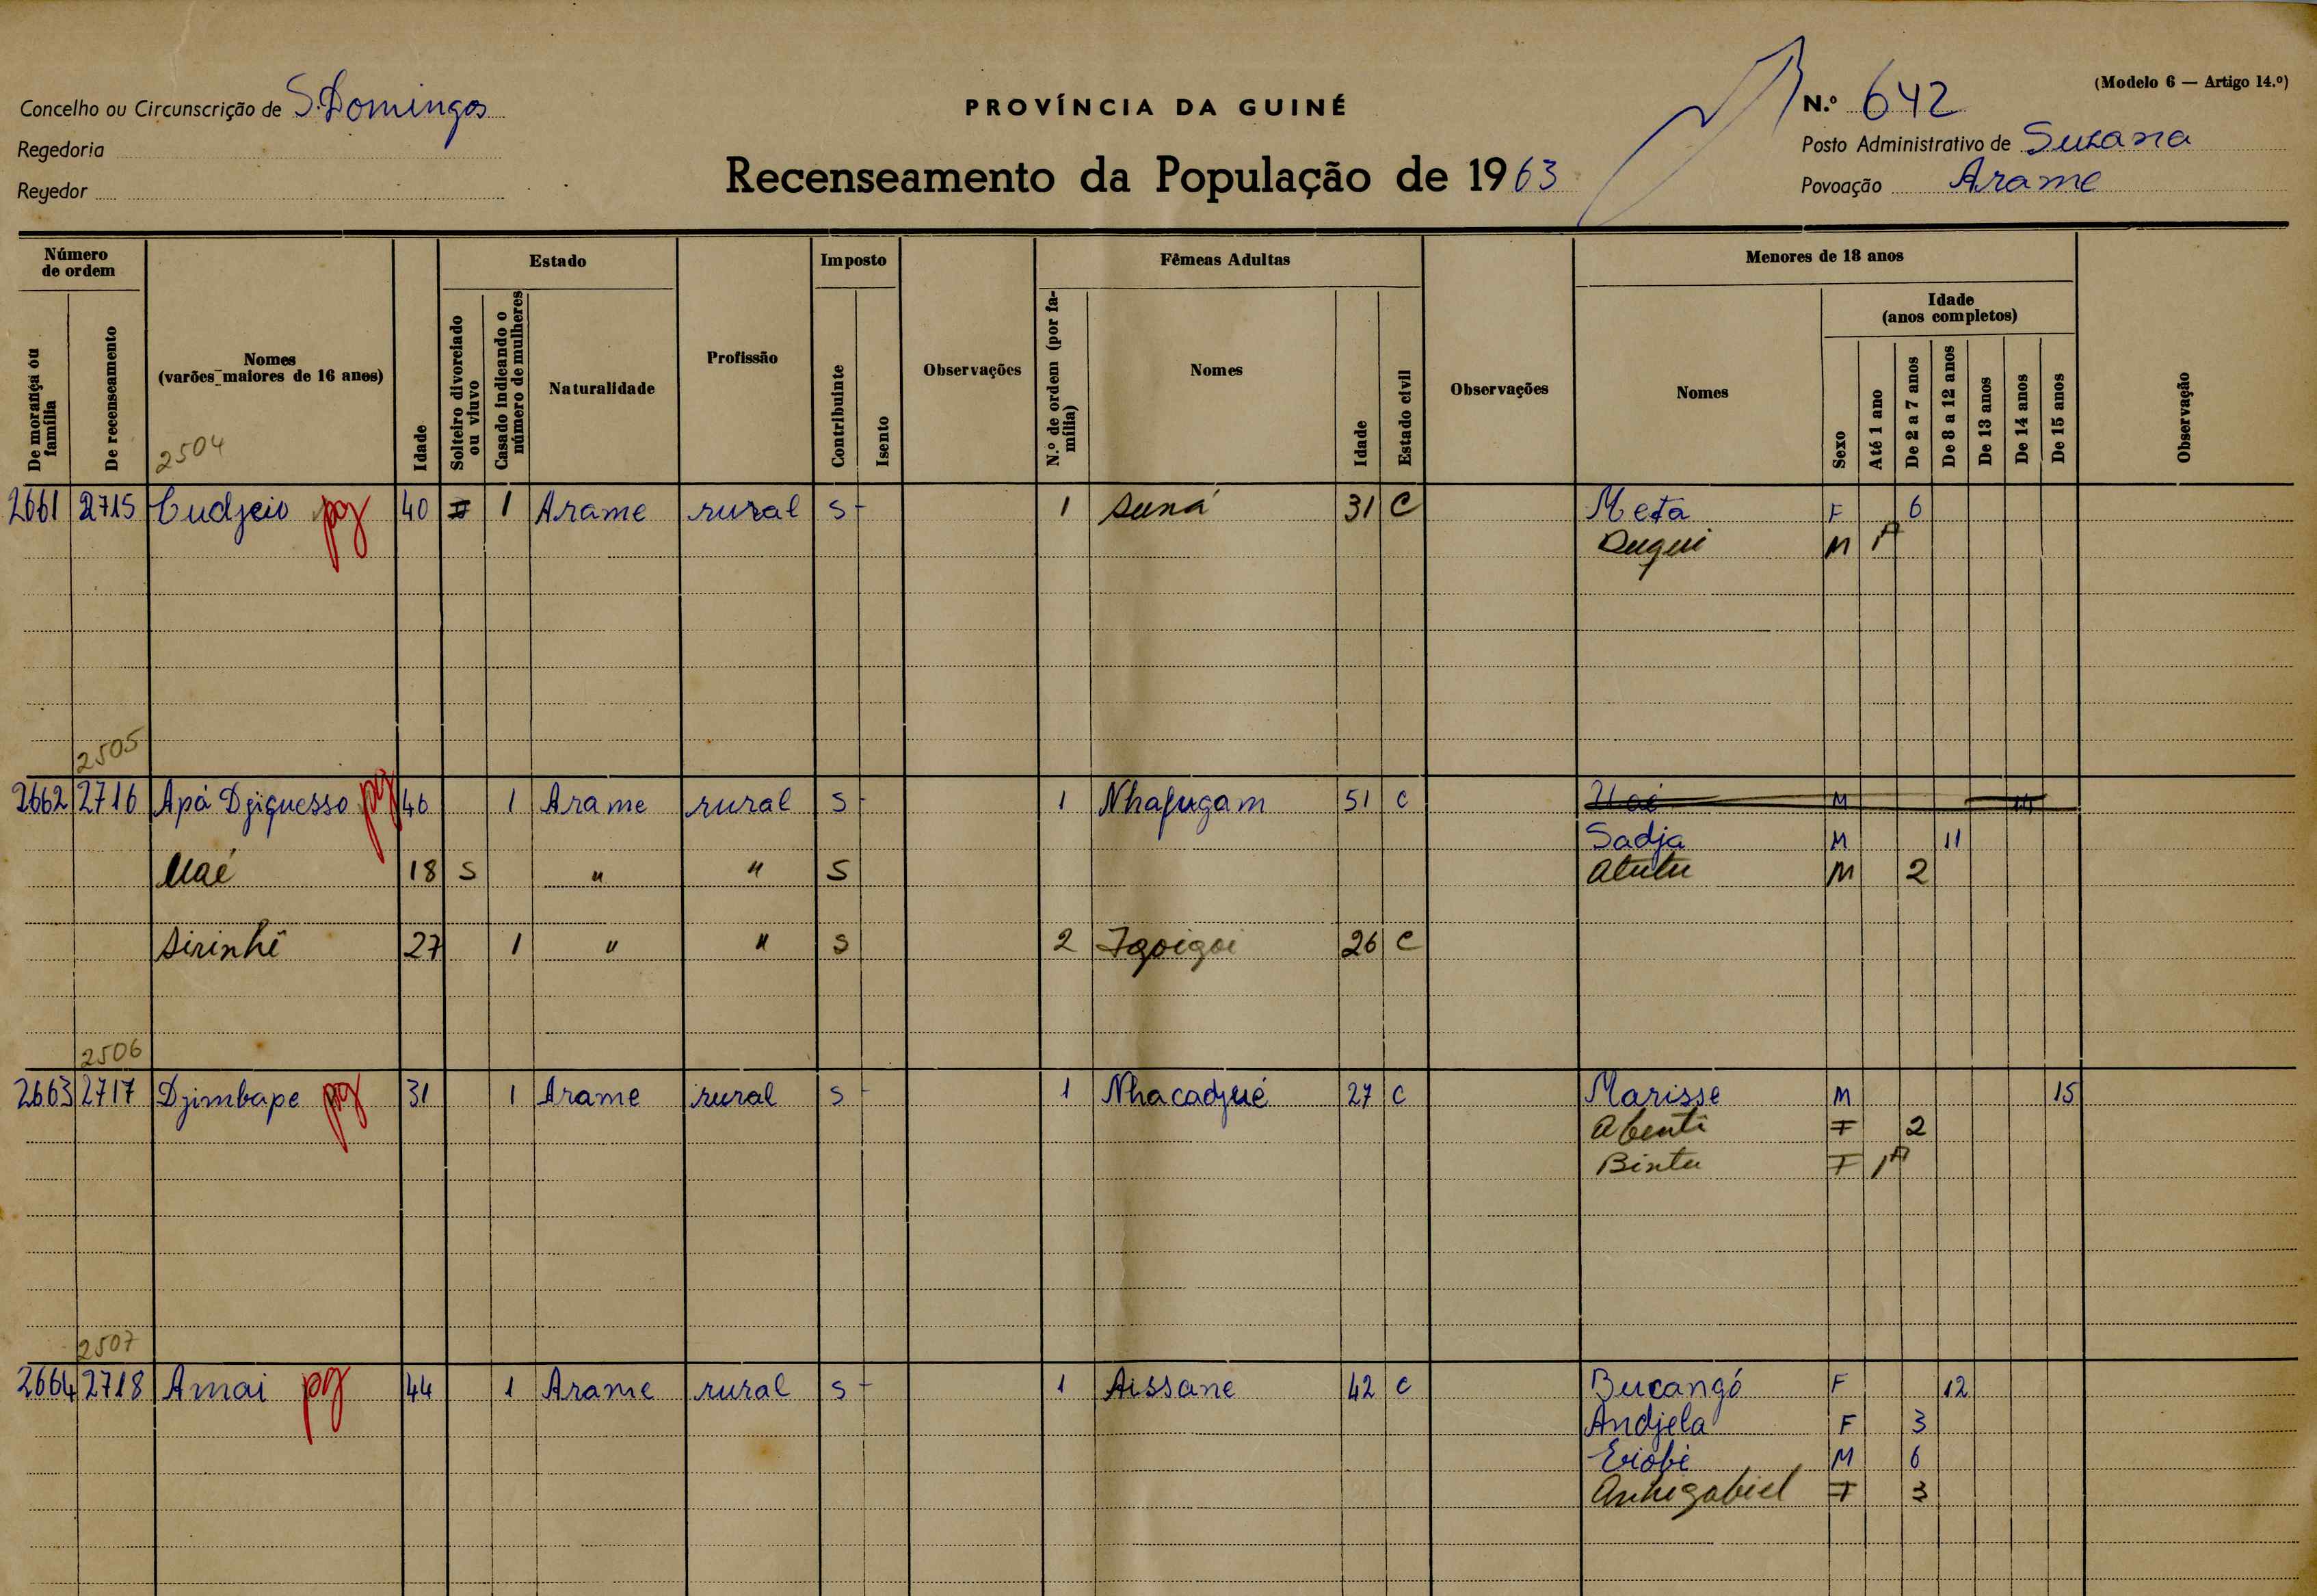 (Modelo 6 — Artigo 14.º)
Concelho ou Circunscrição de S. Domingos
PROVÍNCIA DA GUINÉ
N.º 642
Regedoria
Posto Administrativo de Suzana
Regedor
Recenseamento da População de 1963
Povoação Arame
Número de ordem
Estado
Imposto
Fêmeas Adultas
Menores de 18 anos
De morança ou família
De recenseamento
Nomes (varões maiores de 16 anos)
Idade
Solteiro divorciado ou viuvo
Casado indicando o número de mulheres
Naturalidade
Profissão
Contribuinte
Isento
Observações
N.º de ordem (por família)
Nomes
Idade
Estado civil
Observações
Nomes
Idade (anos completos)
Sexo
Até 1 ano
De 2 a 7 anos
De 8 a 12 anos
De 13 anos
De 14 anos
De 15 anos
Observação
2504
2661 2715 Cudjeio pg 40 1 Arame rural S 1 Suná 31 C Meta F 6
Dugui M 1A
2505
2662 2716 Apá Djiquesso pg 46 1 Arame rural S 1 Nhafugam 51 C Uaé M
Sadja M 11
Uaé 18 S " " S Atutu M 2
Sirinhê 27 1 " " S 2 26 C
2506
2663 2717 Djimbape pg 31 1 Arame rural S 1 Nhacadjué 27 C Marisse M 15
Abenti F 2
Bintu F 1A
2507
2664 2718 Amai pg 44 1 Arame rural S 1 Aissane 42 C Bucangó F 12
Andjela F 3
Eriobé M 6
F 3